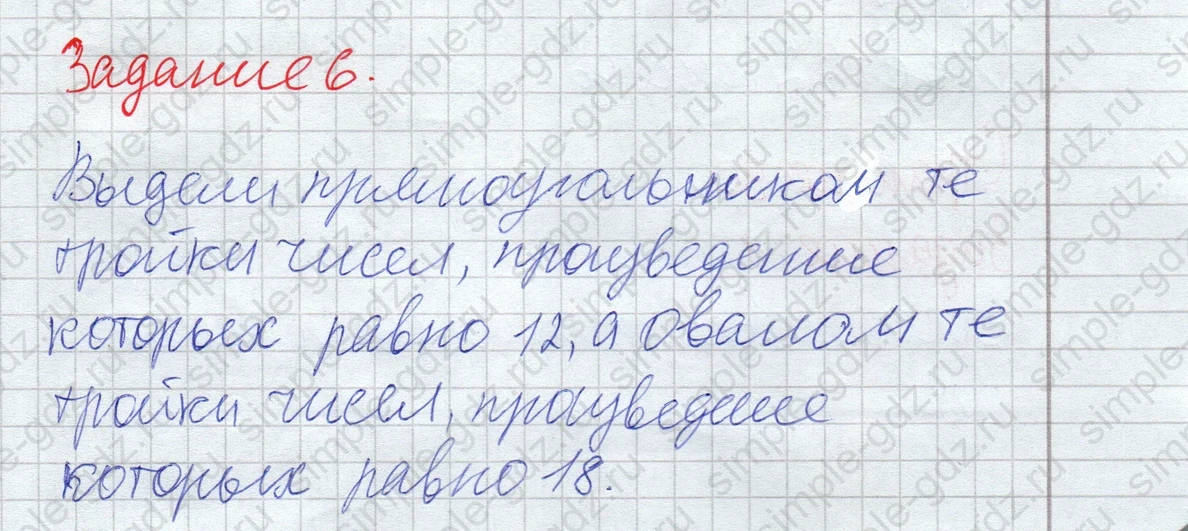 Задание 6.
Выдели прямоугольником те
тройки чисел, произведение
которых равно 12, а овалом те
тройки чисел, произведение
которых равно 18.
simple-gdz.ru